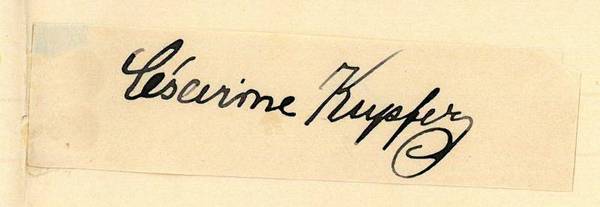 Césarine Kupfer